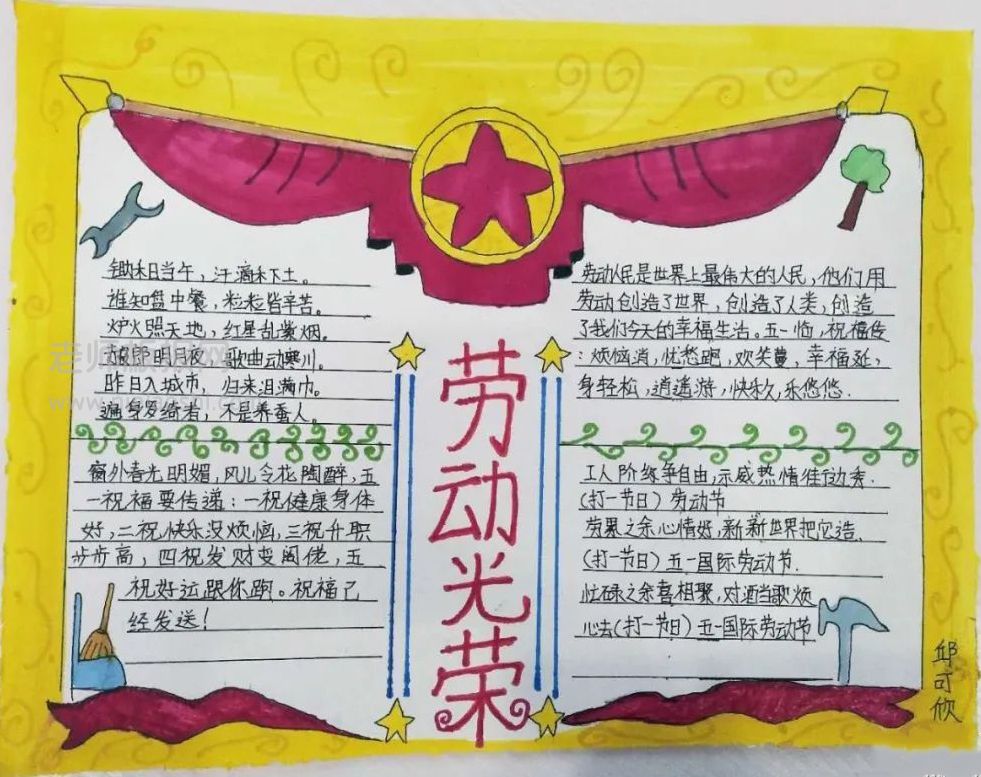 锄禾日当午，汗滴禾下土。
谁知盘中餐，粒粒皆辛苦。
炉火照天地，红星乱紫烟。
赧郎明月夜，歌曲动寒川。
昨日入城市，归来泪满巾。
遍身罗绮者，不是养蚕人。
窗外春光明媚，风儿令花陶醉，五
一祝福要传递：一祝健康身体
好，二祝快乐没烦恼，三祝升职
步步高，四祝发财变阔佬，五
祝好运跟你跑。祝福已
经发送！
劳动光荣
劳动人民是世界上最伟大的人民，他们用
劳动创造了世界，创造了人类，创造
了我们今天的幸福生活。五一临，祝福传
：烦恼消，忧愁跑，欢笑蔓，幸福延，
身轻松，逍遥游，快乐久，乐悠悠.
工人阶级争自由，示威热情往
(打一节日) 劳动节
劳累之余心情好，新新世界把它造.
(打一节日) 五一国际劳动节.
忙碌之余喜相聚，对酒当歌烦
心去(打一节日) 五一国际劳动节
邱可欣
老师